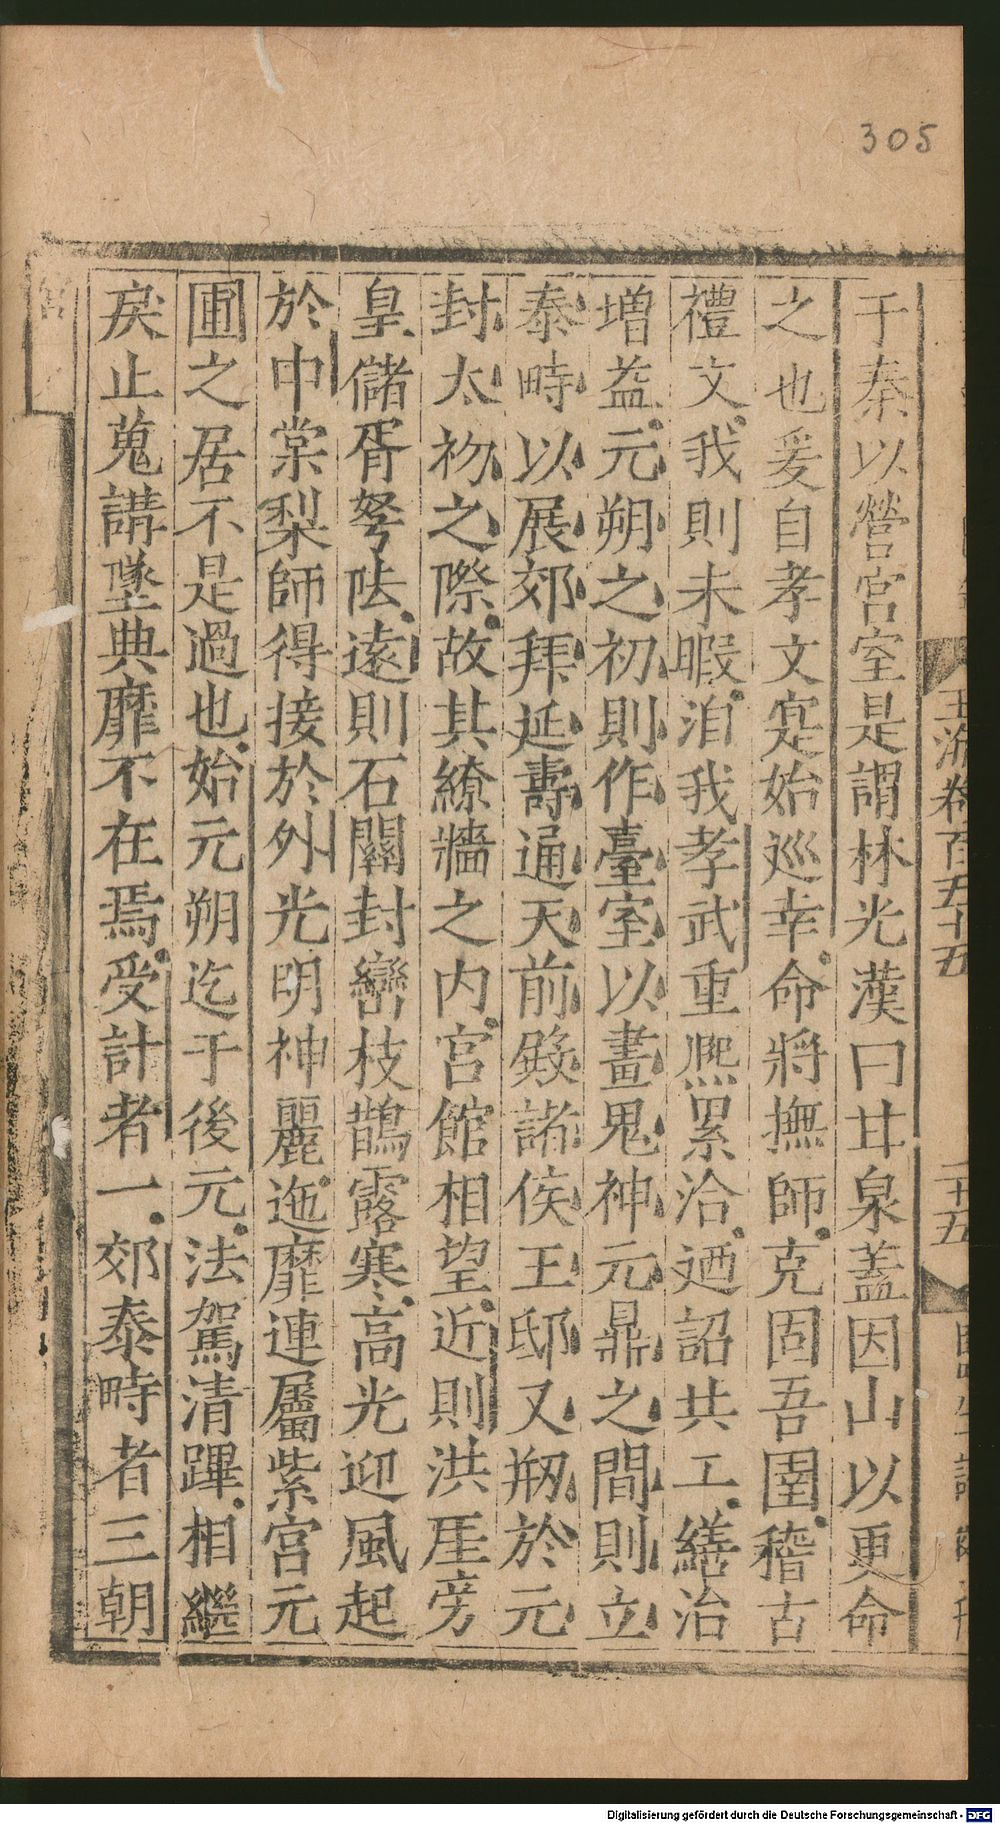 305
于秦以營宮室是謂林光漢曰甘泉蓋因山以更命
之也爰自孝文寔始巡幸命將撫師克固吾圉稽古
禮文我則未暇洎我孝武重熈累洽廼詔共工繕治
增益元朔之初則作臺室以畫鬼神元鼎之間則立
泰畤以展郊拜延壽通天前殿諸侯王邸又剏於元
封太初之際故其繚牆之内宮館相望近則洪厓旁
皇儲胥弩阹遠則石關封巒枝鵲露寒高光迎風起
於中棠梨師得接於外光明神麗迤靡連屬紫宮元
圃之居不是過也始元朔迄于後元法駕清蹕相繼
戾止蒐講墜典靡不在焉受計者一郊泰畤者三朝
玉海卷百五十五
二十五
Digitalisierung gefördert durch die Deutsche Forschungsgemeinschaft - DFG